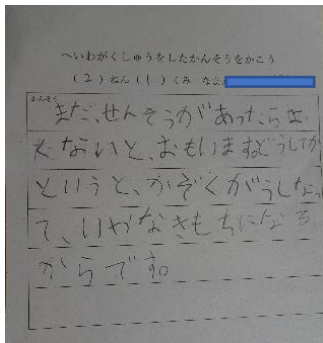 へいわがくしゅうをしたかんそうをかこう
(2)ねん(1)くみ なまえ
かんそう
まだ、せんそうがあったら
たないと、おもいます。どうしてか
というと、かぞくがうしなっ
て、いやなきもちになる
からです。